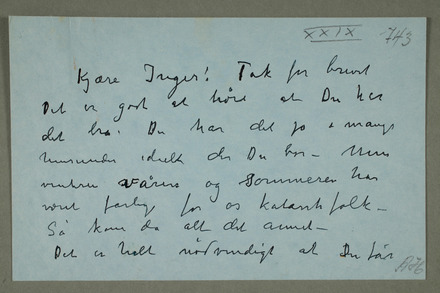 XXIX 743
Kjære Inger! Tak for brevet
Det er godt at høre at Du har
det bra. Du har det jo i mange
der Du bor –
vinteren våren og sommeren har
vært farlig for os katarrh folk –
Så kom da alt det annet –
Det er helt nødvendigt at Du får
A76